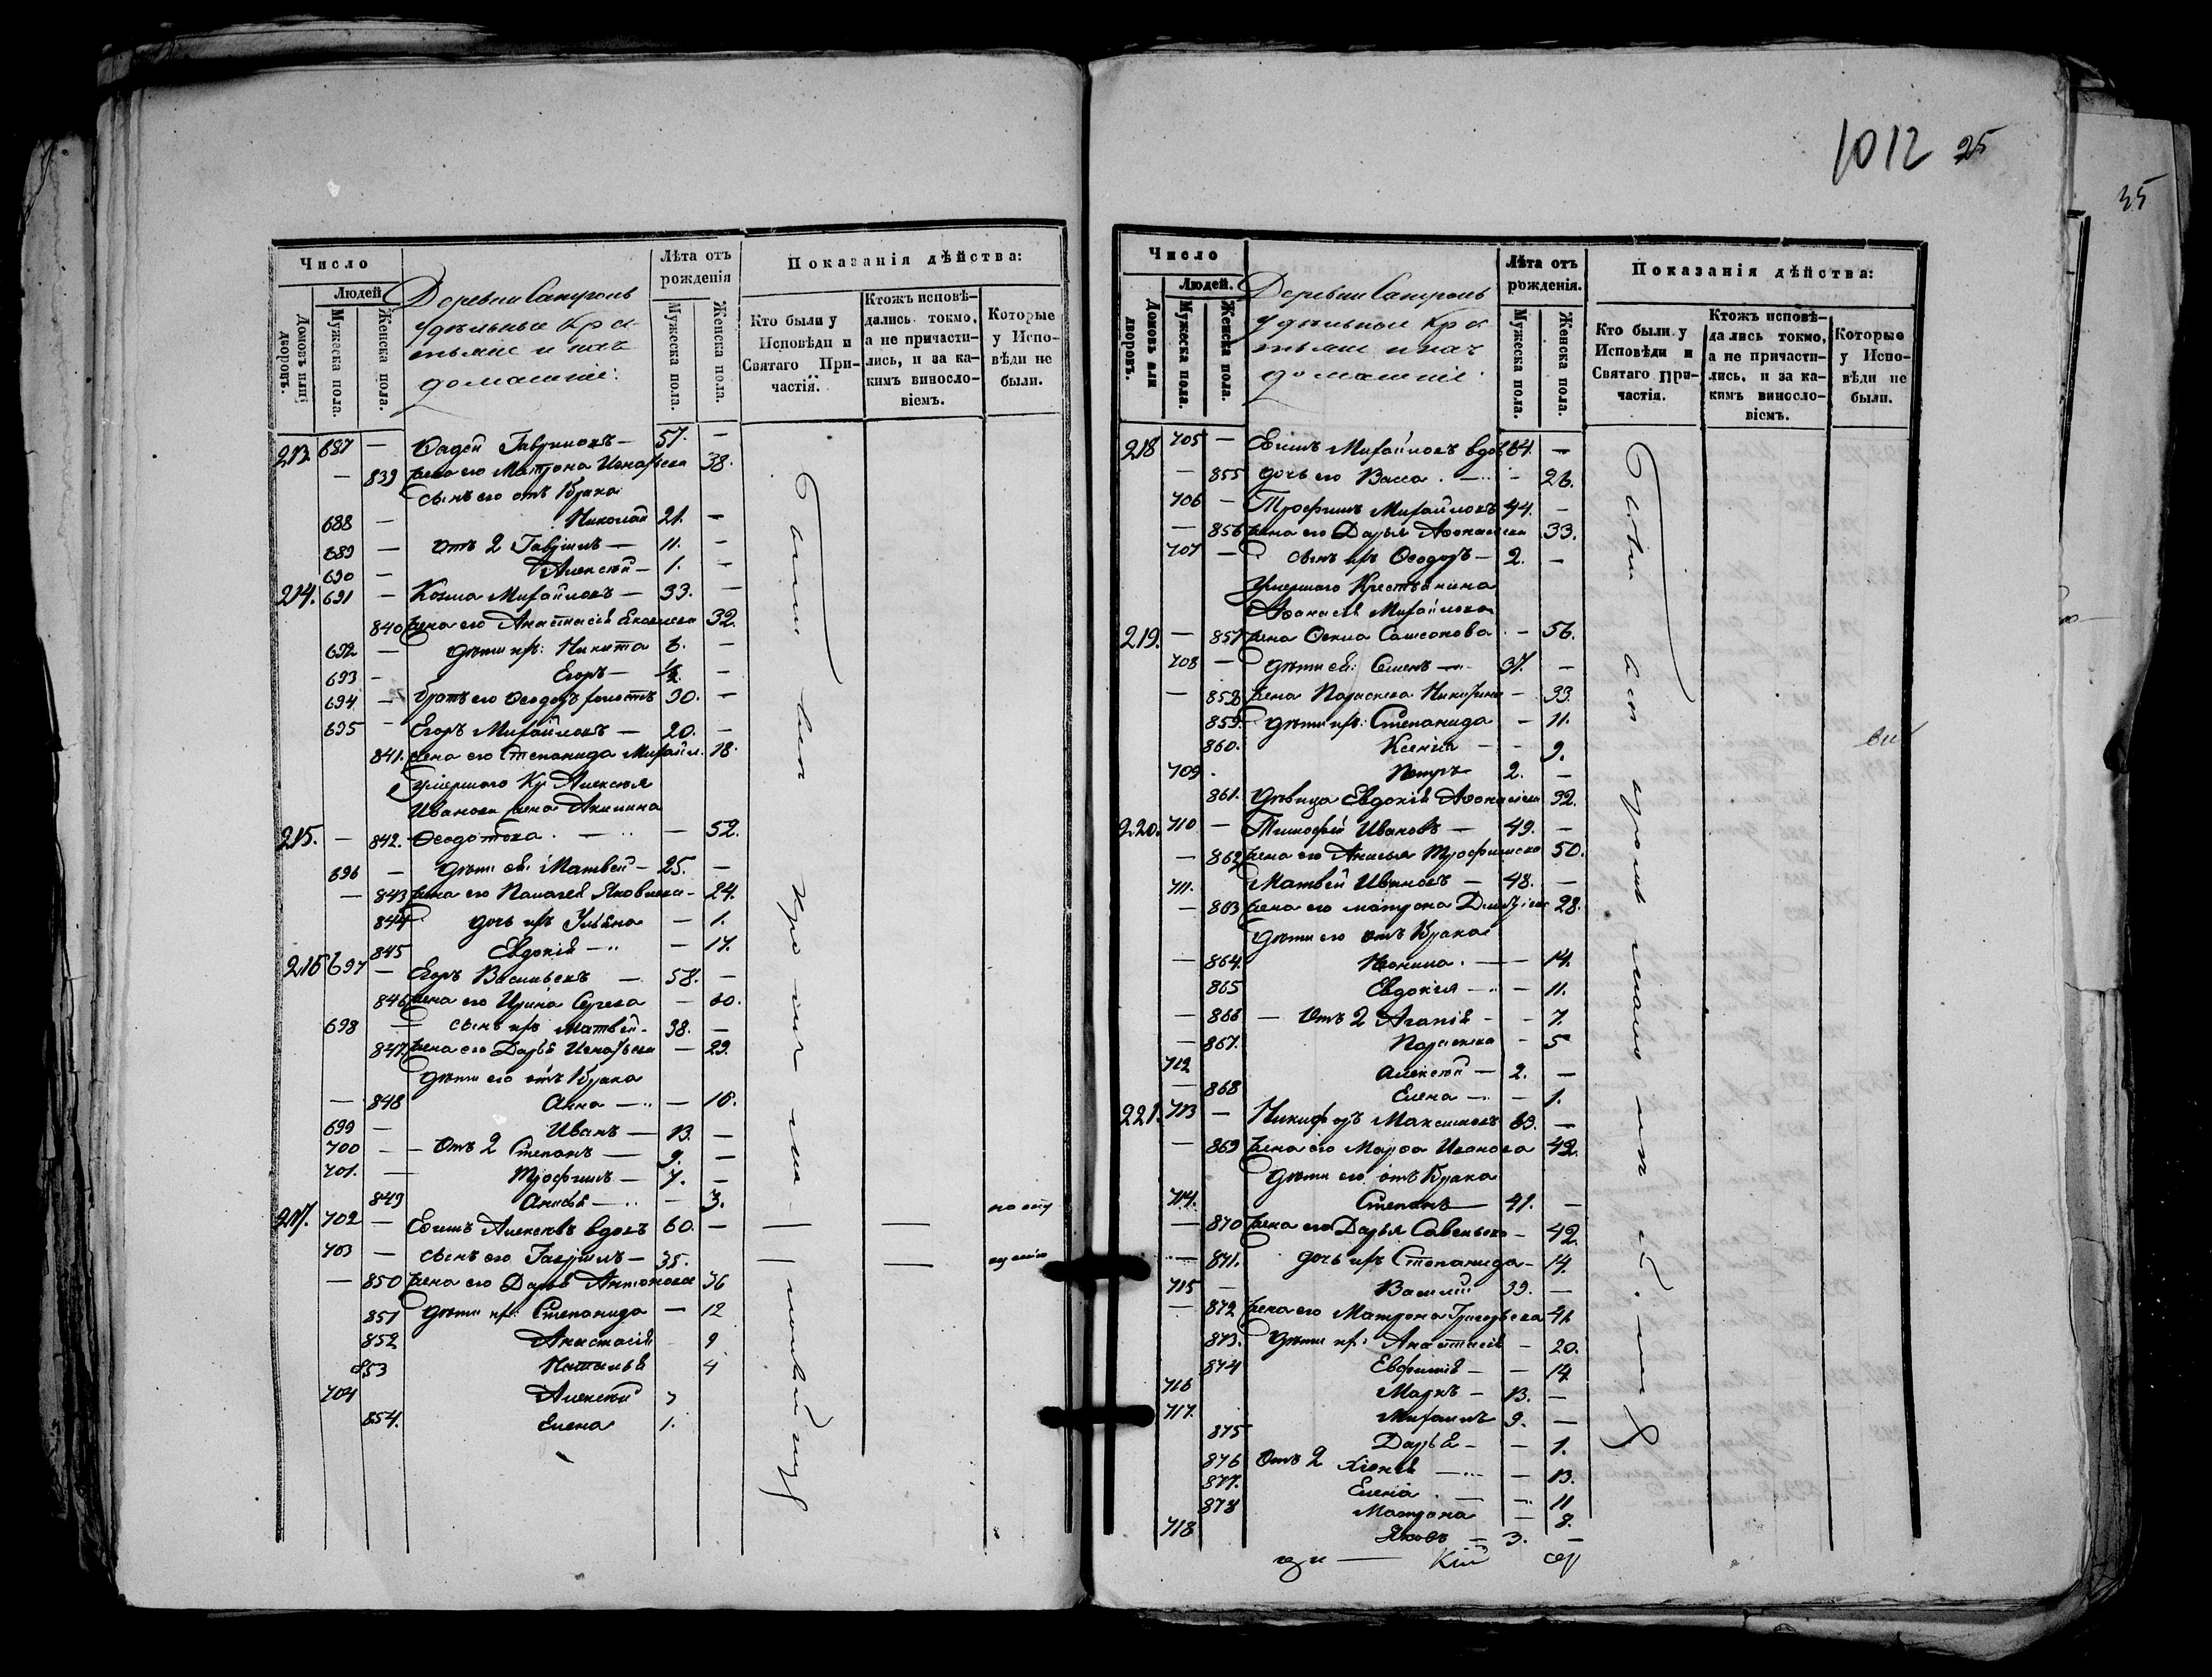 1012 25
35
Число
Людей
Домовъ или дворовъ.
Мужеска пола.
Женска пола.
Деревни
удѣльные кре
стьяне и ихъ
домашніе:
Лѣта отъ рожденія
Мужеска пола.
Женска пола.
Показанія дѣйства:
Кто были у Исповѣди и Святаго Причастія.
Ктожъ исповѣдались токмо, а не причастились, и за какимъ винословіемъ.
Которые у Исповѣди не были.
213 687 — Фадей Гавриловъ — 57. —
— 839 жена его Матрона Игнатьева 38.
сынъ его отъ 1 брака
688 — Николай 21. —
689 — отъ 2 Гавріилъ — 11. —
690 — Алексѣй — 1. —
214. 691 — Козма Михайловъ — 33. —
840 жена его Анастасія Яковлева 32.
692 — дѣти ихъ: Никита 6. —
693 — Егоръ — ½ —
694 — братъ его Ѳеодоръ холостъ 30. —
695 — Егоръ Михайловъ — 20. —
841. жена его Степанида Михайл. 18.
умершаго Кр. Алексѣя
Иванова жена Акилина
215. — 842. Ѳеодотова — — 52.
696 — дѣти ея: Матвей — 25. —
— 843 жена его Пелагея Яковлева — 24.
844 дочь ихъ Ульяна — 1.
845 Евдокія — — 17.
216 697 — Егоръ Васильевъ — 58. —
846 жена его Ирина — 60.
698 — сынъ ихъ Матвей — 38. —
847. жена его Дарья Игнатьева — 29.
дѣти его отъ 1 брака
— 848 Анна — — 16.
699 — Иванъ — 13. —
700 — — отъ 2 Степанъ — 9. —
701. — Трофимъ — 7. —
849 Анисья — — 3.
217. 702 — Ефимъ Алексѣевъ вдовъ 60. —
703 — сынъ его Гавріилъ — 35.
— 850 жена его Дарья Антонова 36
851 дѣти их: Степанида — 12
852 Анастасія 9
853 Наталья 4
704 Алексѣй
854. Елена 1.
Число
Людей.
Домовъ или дворовъ.
Мужеска пола.
Женска пола.
Деревни
удѣльные кре
стьяне и ихъ
домашніе
Лѣта отъ рожденія.
Мужеска пола.
Женска пола.
Показанія дѣйства:
Кто были у Исповѣди и Святаго Причастія.
Ктожъ исповѣдались токмо, а не причастились, и за какимъ винословіемъ.
Которые у Исповѣди не были.
218 705 — Ефимъ Михайловъ вдовъ 64. —
— 855 дочь его Васса — 26.
706 — Трофимъ Михайловъ 44. —
— 856 жена его Дарья Аѳонасьева 33.
707 — сынъ ихъ Ѳеодоръ — 2. —
умершаго Крестьянина
Аѳанасія Михайлова
219. — 857 жена Ѳекла Самсонова — 56.
708 — дѣти ея: Семенъ — 37. —
— 858 жена Параскева Никитина — 33.
859. дѣти ихъ: Степанида — 11.
860. Ксенія — 9.
709. Петръ 2. —
861. дѣвица Евдокія Аѳонасьева 32.
220. 710 — Тимофей Ивановъ — 49. —
— 862 жена его Анисья Трофимова 50.
711. Матвей Ивановъ — 48. —
— 863 жена его Матрона 28.
дѣти его отъ 1 брака
— 864. — 14.
865 Евдокія — — 11.
— 866 — отъ 2 Агапія — — 7.
— 867. Параскева — 5
712 Алексѣй — 2. —
— 868 Елена — — 1.
221. 713 — Никифоръ Максимовъ 69. —
— 869 жена его Марфа Иванова 42.
дѣти его отъ 1 брака
714. Степанъ — 41. —
— 870 жена его Дарья Савельева — 42
— 871. дочь ихъ Степанида — 14.
715 — Василій 39. —
— 872 жена его Матрона Григорьева 41
873. дѣти их: Анастасія — 20.
874 Евфимія — — 14
716 Маркъ — 13. —
717. Михаилъ 9. —
875 Дарья — — 1.
876 отъ 2 — 13.
877. Елена — — 11
878 Матрона — 8.
718 Яковъ — 3. —